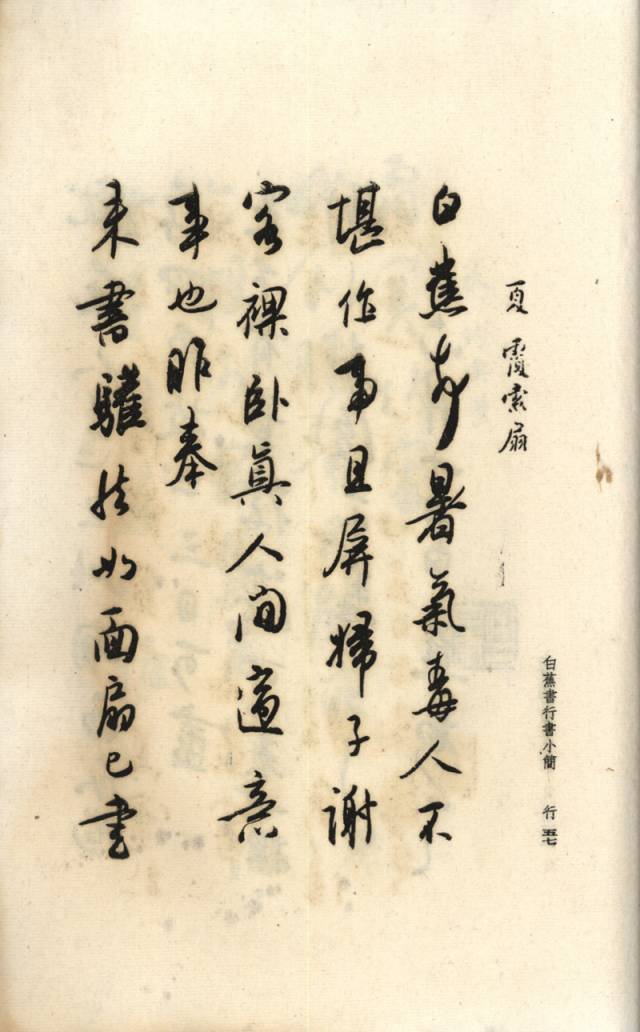 白蕉書行書小簡 行五七
夏霞索扇
白蕉頓首暑氣毒人不
堪作事且屏婦子謝
客裸卧真人間適意
事也昨奉
来書驩然如面扇已書